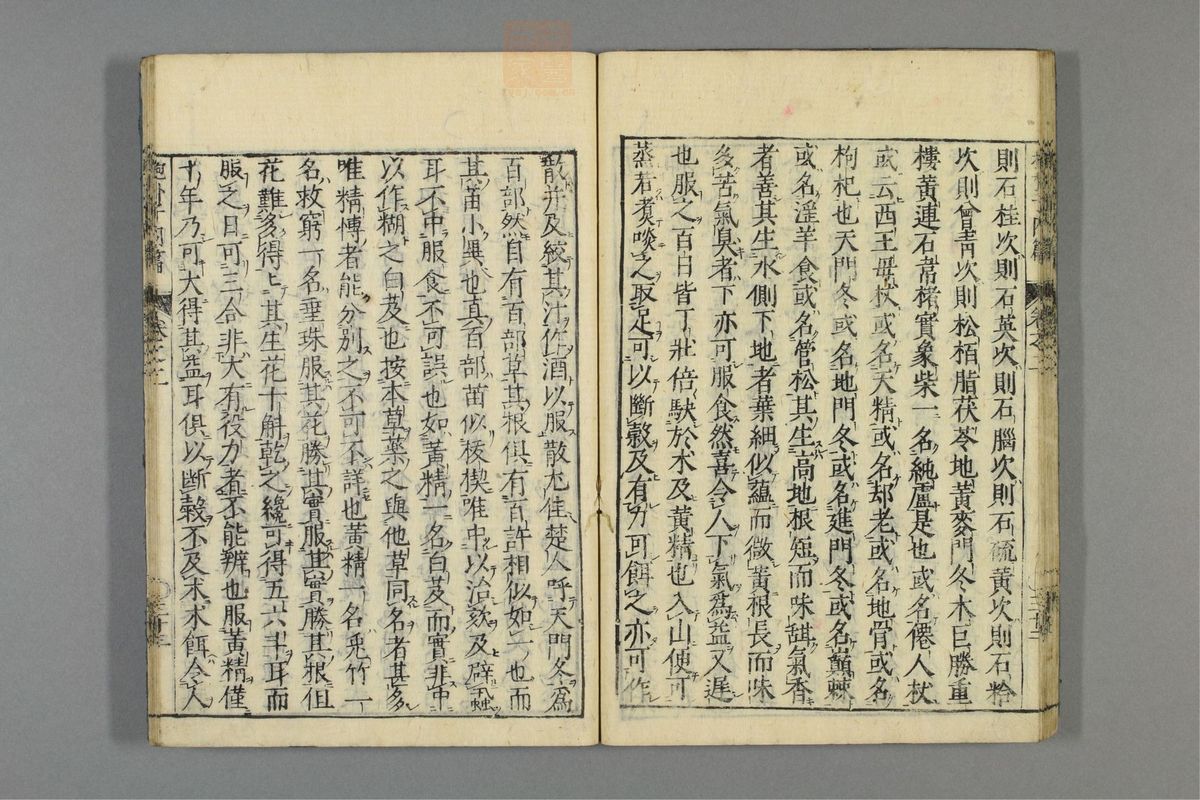 則石桂次則石英次則石腦次則石硫黃次則石粭
次則曾青次則松栢脂茯苓地黃麥門冬木巨勝重
樓黃連石韋楮實象柴一名純盧是也或名僊人杖
或云西王母杖或名天精或名却老或名地骨或名
枸杞也天門冬或名地門冬或名筵門冬或名顛棘
或名淫羊食或名管松其生高地根短而味甜氣香
者善其生水側下地者葉細似蘊而微黃根長而味
多苦氣臭者下亦可服食然喜令人下氣爲益又遲
也服之百日皆丁壯倍駃於术及黃精也入山便可
蒸若煑啖之取足可以斷穀及有力可餌之亦可作
散并及絞其汁作酒以服散尤佳楚人呼天門冬爲
百部然自有百部草其根俱有百許相似如一也而
其苗小異也真百部苗似菝楔唯中以治欬及辟蝨
耳不中服食不可誤也如黃精一名白芨而實非中
以作糊之白芨也按本草藥之與他草同名者甚多
唯精愽者能分別之不可不詳也黃精一名兎竹一
名救窮一名垂珠服其花勝其實服其實勝其根但
花難多得ヒ其生花十斛乾之纔可得五六斗耳而
服之日可三合非大有役力者不能辨也服黃精僅
十年乃可大得其益耳俱以斷穀不及术术餌令人
抱朴子內篇 卷之二